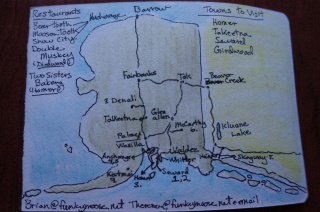 Restaurants
Bear Tooth
Moose's Tooth
Snow City
Double
Muskey
(Girdwood)
Two Sisters
Bakery
(Homer)
Barrow
Towns To Visit
Homer
Talkeetna
Seward
Girdwood
Anchorage
Fairbanks
Tok
Beaver
Creek
Denali
Talkeetna
Glen
allen
McCarthy
Kluane
Lake
Palmer
Wasilla
Anchorage
Valdez
Whittier
Haines
Skagway
Homer
3
Seward
1,2
Brian@funkymoose.net Theresa@funkymoose.net email